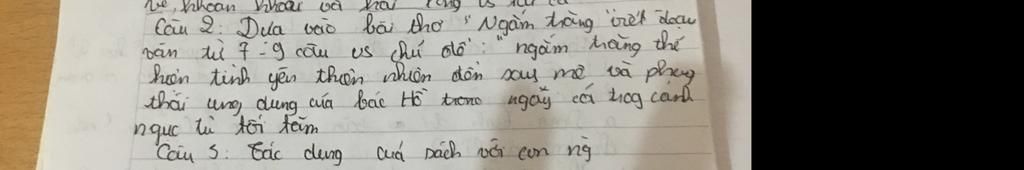 vẻ, khoan khoái và
Câu 2: Dựa vào bài thơ "Ngắm trăng" viết đoạn
văn từ 7-9 câu vs chủ đề: "ngắm trăng thể
hiện tình yêu thiên nhiên đến say mê và phong
thái ung dung của bác Hồ trong ngay cả trog cảnh
ngục tù tối tăm
Câu 5: Tác dụng cuả sách với con ng